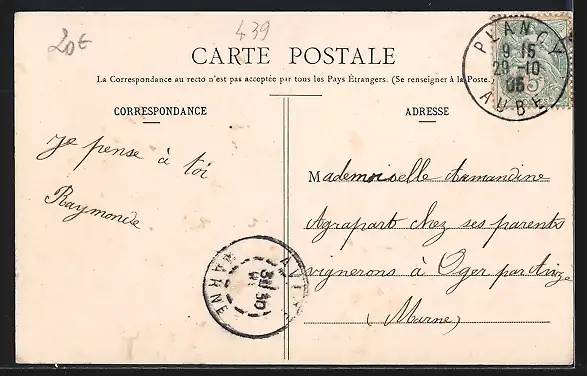 20€
439
CARTE POSTALE
La Correspondance au recto n'est pas acceptée par tous les Pays Étrangers. (Se renseigner à la Poste.)
CORRESPONDANCE
ADRESSE
PLANCY
9 15
29 -10
05
AUBE
5
je pense à toi
Raymonde
Mademoiselle Armandine
Agrapart chez ses parents
vignerons à Oger par Avize
(Marne)
AVIZE
MARNE